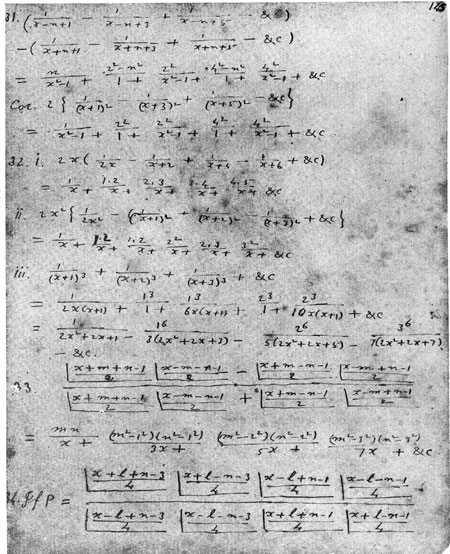 123
31. (1/(x-n+1) - 1/(x-n+3) + 1/(x-n+5) - &c)
-(1/(x+n+1) - 1/(x+n+3) + 1/(x+n+5) - &c)
= n/(x²-1 +) (2²-n²)/(1 +) 2²/(x²-1 +) (4²-n²)/(1 +) 4²/(x²-1 + &c)
Cor. 2 { 1/(x+1)² - 1/(x+3)² + 1/(x+5)² - &c }
= 1/(x²-1 +) 2²/(1 +) 2²/(x²-1 +) 4²/(1 +) 4²/(x²-1 + &c)
32. i. 2x( 1/2x - 1/(x+2) + 1/(x+4) - 1/(x+6) + &c)
= 1/(x +) 1.2/(x +) 2.3/(x +) 3.4/(x +) 4.5/(x + &c)
ii. 2x² { 1/2x² - 1/(x+1)² + 1/(x+2)² - 1/(x+3)² + &c }
= 1/(x +) 1.2/(x +) 1.2/(x +) 2²/(x +) 2.3/(x +) 3²/(x + &c)
iii. 1/(x+1)³ + 1/(x+2)³ + 1/(x+3)³ + &c
= 1/(2x(x+1) +) 1³/(1 +) 1³/(6x(x+1) +) 2³/(1 +) 2³/(10x(x+1) + &c)
= 1/(2x²+2x+1 -) 1⁶/(3(2x²+2x+3) -) 2⁶/(5(2x²+2x+5) -) 3⁶/(7(2x²+2x+7)
- &c.
33. (|(x+m+n-1)/2 |(x-m-n-1)/2 - |(x+m-n-1)/2 |(x-m+n-1)/2) / (|(x+m+n-1)/2 |(x-m-n-1)/2 + |(x+m-n-1)/2 |(x-m+n-1)/2)
= mn/(x +) (m²-1²)(n²-1²)/(3x +) (m²-2²)(n²-2²)/(5x +) (m²-3²)(n²-3²)/(7x + &c)
If P = (|(x+l+n-3)/4 |(x+l-n-3)/4 |(x-l+n-1)/4 |(x-l-n-1)/4) / (|(x-l+n-3)/4 |(x-l-n-3)/4 |(x+l+n-1)/4 |(x+l-n-1)/4)